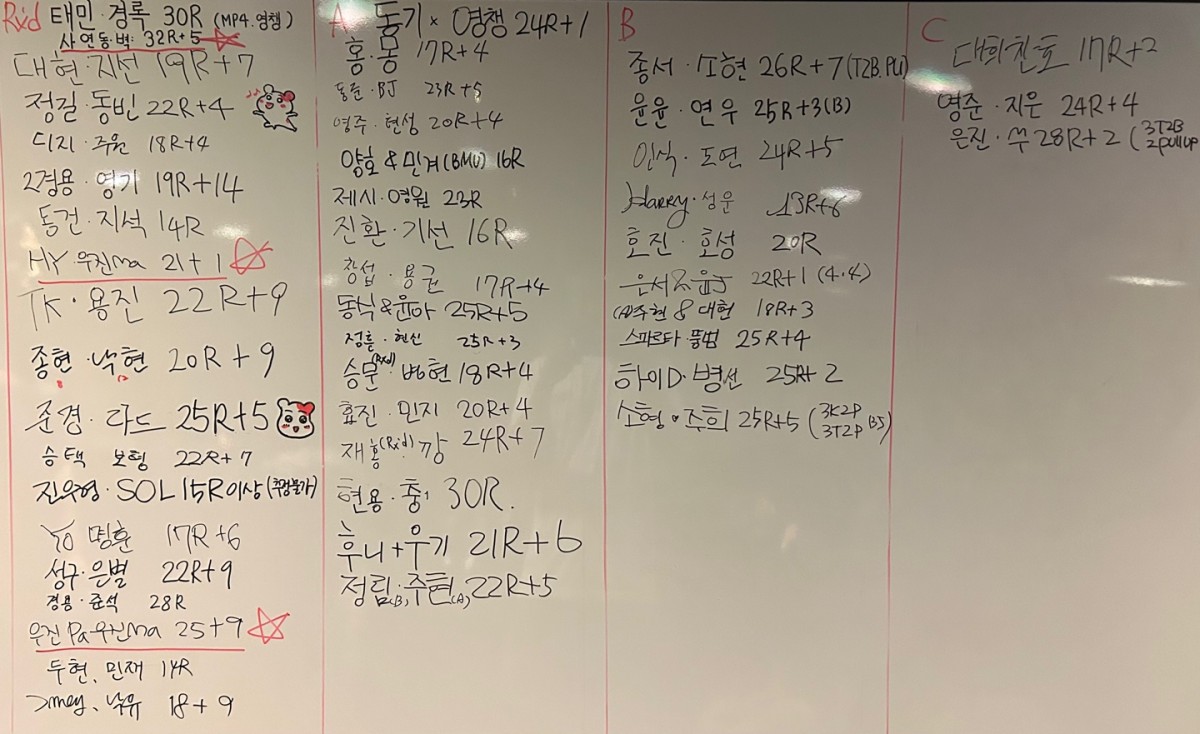 Rx'd
태민·경록 30R (MP4.영챙)
사연동벽: 32R+5
대현·지선 19R+7
정길·동빈 22R+4
디지·주원 18R+4
2경용·영기 19R+14
동건·지석 14R
HY·우진ma 21+1
TK·용진 22R+9
종현·낙현 20R+9
준경·다드 25R+5
승택 보형 22R+7
진우형·SOL 15R이상(측정불가)
YO 명훈 17R+6
성구·은별 22R+9
경용·준석 28R
우진Pa우진ma 25+9
두현, 민재 14R
낙유 18+9
A
동기×영챙 24R+1
홍·몽 17R+4
동준·BJ 23R+5
영주·현성 20R+4
양호&민계(BMU) 16R
제시·영원 23R
진환·기선 16R
창섭·용균 17R+4
동식&윤아 25R+5
정흠·현신 25R+3
승문(Rxd)·병현 18R+4
효진·민지 20R+4
재홍(Rxd)·깡 24R+7
현용·충1 30R.
후니+우기 21R+6
정림(B),주현(A),22R+5
B
종서·소현 26R+7(T2B.PU)
윤윤·연우 25R+3(B)
인식·도연 24R+5
Harry·성운 13R+6
효진·효성 20R
22R+1 (4.4)
(A)주현&대현 18R+3
스파르타·뚱범 25R+4
하이D·병선 25R+2
소형·주희 25R+5 (3K2P 3T2P BJ)
C
대희찬호 17R+2
영준·지은 24R+4
은진·쑤 28R+2 (3T2B 2pull up